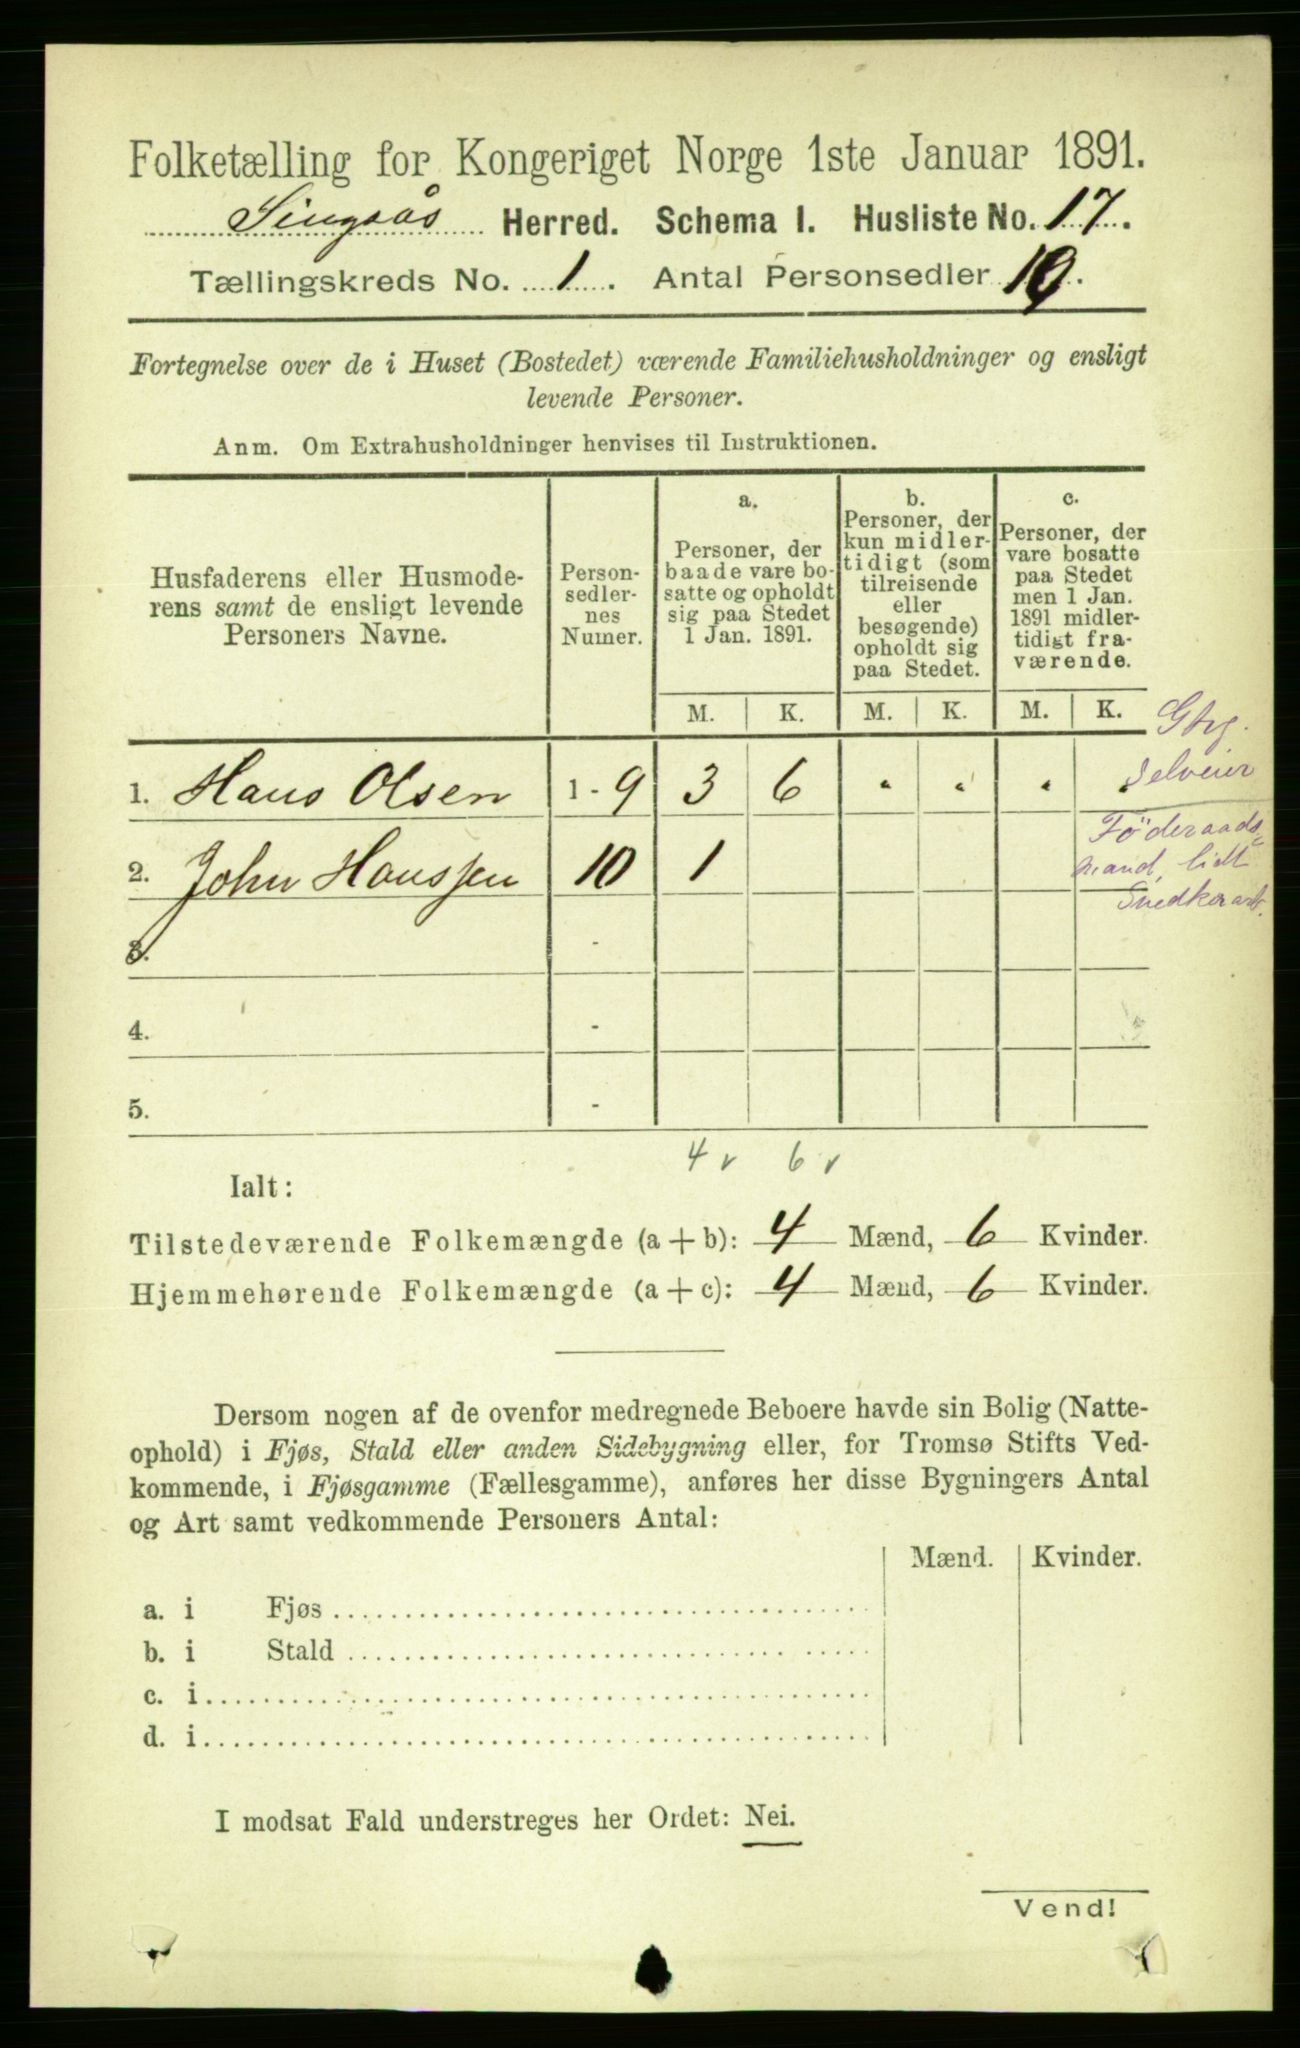 Folketælling for Kongeriget Norge 1ste Januar 1891.
Singsås Herred. Schema I. Husliste No. 17.
Tællingskreds No. 1. Antal Personsedler 10.
Fortegnelse over de i Huset (Bostedet) værende Familiehusholdninger og ensligt
levende Personer.
Anm. Om Extrahusholdninger henvises til Instruktionen.
Husfaderens eller Husmode-
rens samt de ensligt levende
Personers Navne.
Person-
sedler-
nes
Numer.
a.
Personer, der
baade vare bo-
satte og opholdt
sig paa Stedet
1 Jan. 1891.
b.
Personer, der
kun midler-
tidigt (som
tilreisende
eller
besøgende)
opholdt sig
paa Stedet.
c.
Personer, der
vare bosatte
paa Stedet
men 1 Jan.
1891 midler-
tidigt fra-
værende.
M. K. M. K. M. K.
Gbrg.
Selveier
1. Hans Olsen 1 - 9 3 6 " " " "
Föderaads-
mand, lidt
Snedkerarb.
2. John Hanssen 10 1
3. -
4. -
5. -
4 v 6 v
Ialt:
Tilstedeværende Folkemængde (a + b): 4 Mænd, 6 Kvinder.
Hjemmehørende Folkemængde (a + c): 4 Mænd, 6 Kvinder.
Dersom nogen af de ovenfor medregnede Beboere havde sin Bolig (Natte-
ophold) i Fjøs, Stald eller anden Sidebygning eller, for Tromsø Stifts Ved-
kommende, i Fjøsgamme (Fællesgamme), anføres her disse Bygningers Antal
og Art samt vedkommende Personers Antal:
Mænd. Kvinder.
a. i Fjøs
b. i Stald
c. i
d. i
I modsat Fald understreges her Ordet: Nei.
Vend!